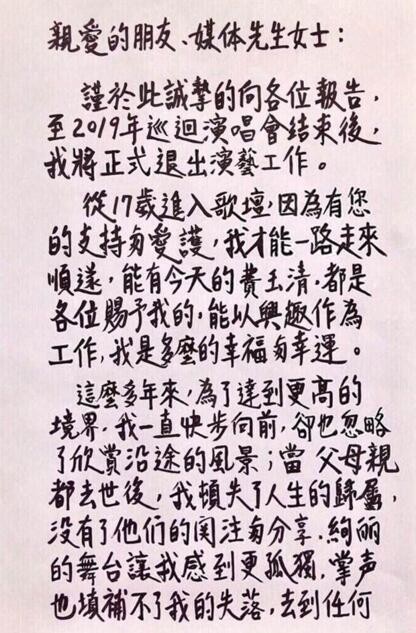 親愛的朋友、媒体先生女士：
謹於此誠摯的向各位報告，
至2019年巡迴演唱會結束後，
我將正式退出演藝工作。
從17歲進入歌壇，因為有您
的支持与愛護，我才能一路走來
順遂，能有今天的費玉清，都是
各位賜予我的，能以興趣作為
工作，我是多麼的幸福与幸運。
這麼多年來，為了達到更高的
境界，我一直快步向前，卻也忽略
了欣賞沿途的風景；當父母親
都去世後，我頓失了人生的歸屬，
没有了他們的関注与分享，絢麗
的舞台讓我感到更孤獨，掌声
也填補不了我的失落，去到任何